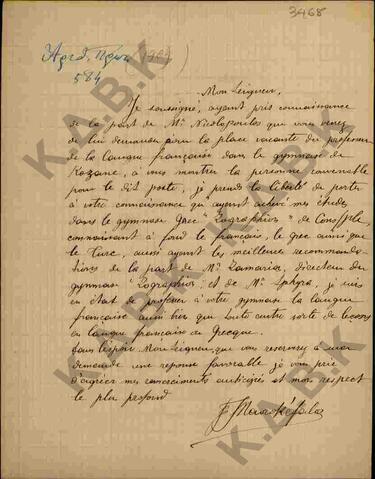 3468
Αριθ. Πρωτ. (1907)
584
Mon Seigneur,
Je soussigné, ayant pris connaissance
de la part de Mr Nicolopoulos que vous venez
de lui demander pour la place vacante du professeur
de la langue française dans le gymnase de
Kozane, à vous montrer la personne convenable
pour le dit poste, je prends la liberté de porter
à votre connaissance qu'ayant achevé mes études
dans le gymnase Grec "Zographion" de Const/ple,
connaissant à fond le français, le grec ainsi que
le Turc, aussi ayant les meilleures recommanda-
tions de la part de Mr Zamarias, directeur du
gymnase "Zographion" et de Mr Sphyra, je suis
en état de professer à votre gymnase la langue
française aussi bien que toute autre sorte de leçons
en langue française ou Grecque.
Dans l'espoir Mon Seigneur, que vous reserverez à ma
demande une reponse favorable, je vous prie
d'agréer mes remerciments anticipés et mon respect
le plus profond
K.A.B.K
K.A.B.K
K.A.B.K